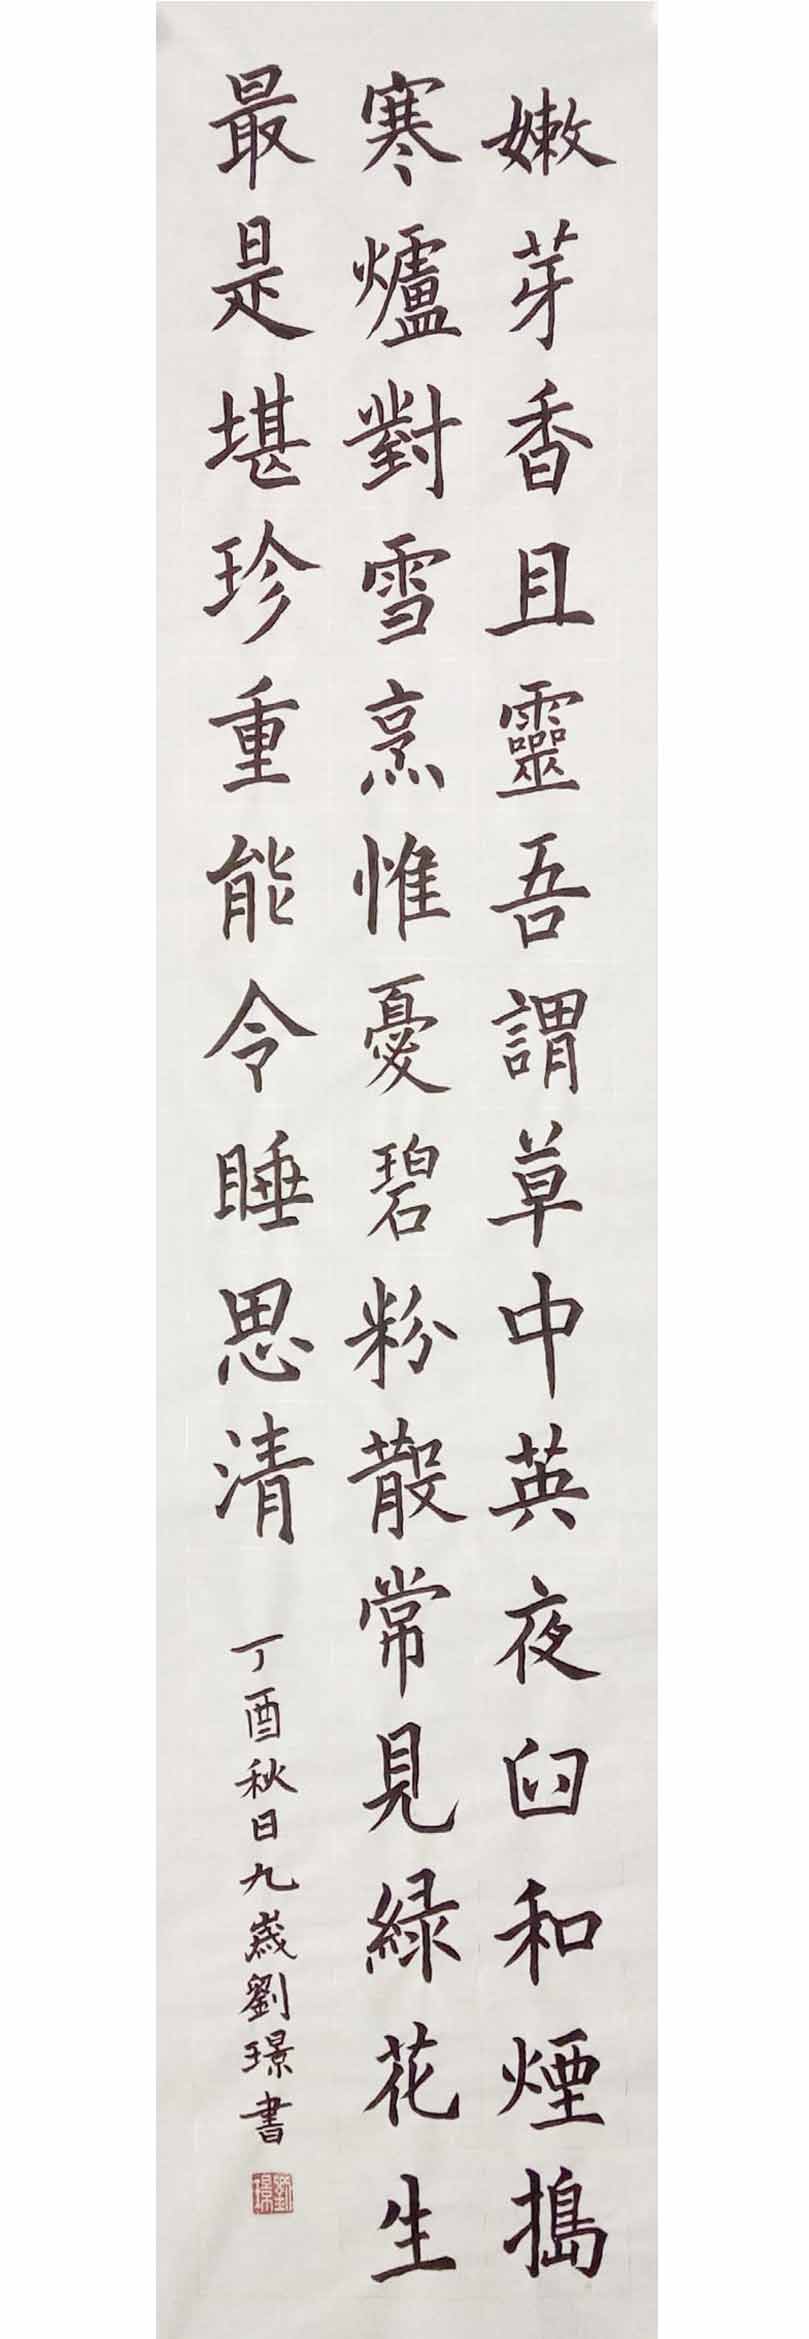 嫩芽香且靈吾謂草中英夜臼和煙搗
寒爐對雪烹惟憂碧粉散常見緑花生
最是堪珍重能令睡思清
丁酉秋日九歲劉璟書
劉璟